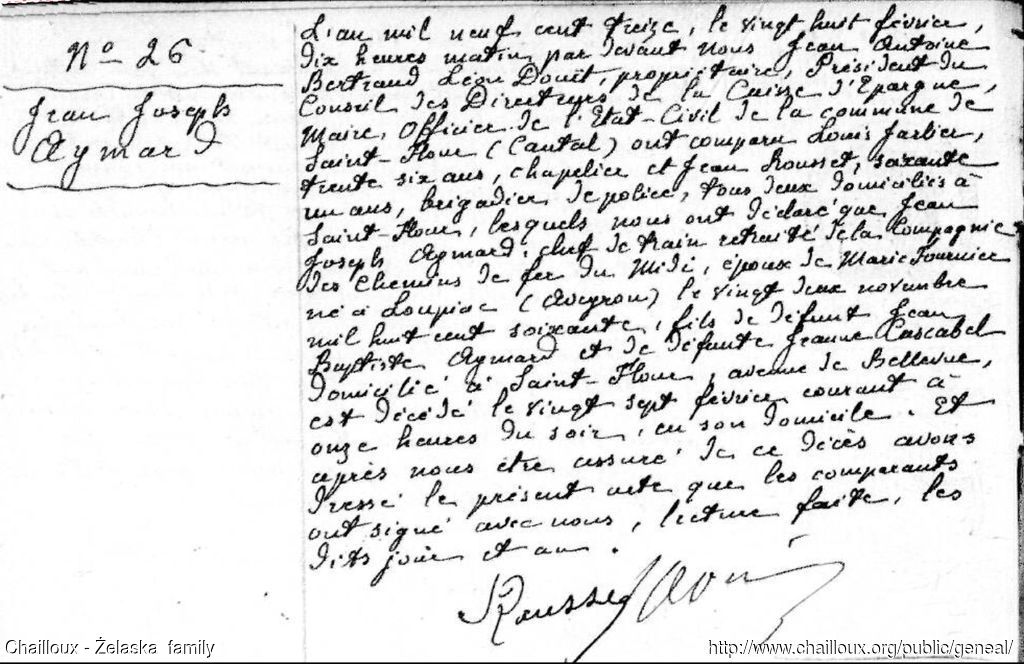 No 26
Jean Joseph
Aymard
L'an mil neuf cent treize, le vingt huit février,
dix heures matin, par devant nous Jean Antoine
Bertrand Léon Douet, propriétaire, Président du
Conseil des Directeurs de la Caisse d'Epargne,
Maire, Officier de l'Etat-Civil de la commune de
Saint-Flour (Cantal) ont comparu Louis Jarlier,
trente six ans, chapelier et Jean Rousset, soixante
un ans, brigadier de police, tous deux domiciliés à
Saint-Flour, lesquels nous ont déclaré que Jean
Joseph Aymard, chef de train retraité de la Compagnie
des Chemins de fer du Midi, époux de Marie Fournier
né à Loupiac (Aveyron) le vingt deux novembre
mil huit cent soixante, fils de défunt Jean
Baptiste Aymard et de défunte Jeanne Cascabel
domicilié à Saint-Flour, avenue de Bellevue,
est décédé le vingt sept février courant à
onze heures du soir, en son domicile. Et
après nous être assuré de ce décès avons
dressé le présent acte que les comparants
ont signé avec nous, lecture faite, les
dits jour et an.
Rousset
Chailloux - Żelaska family
http://www.chailloux.org/public/geneal/